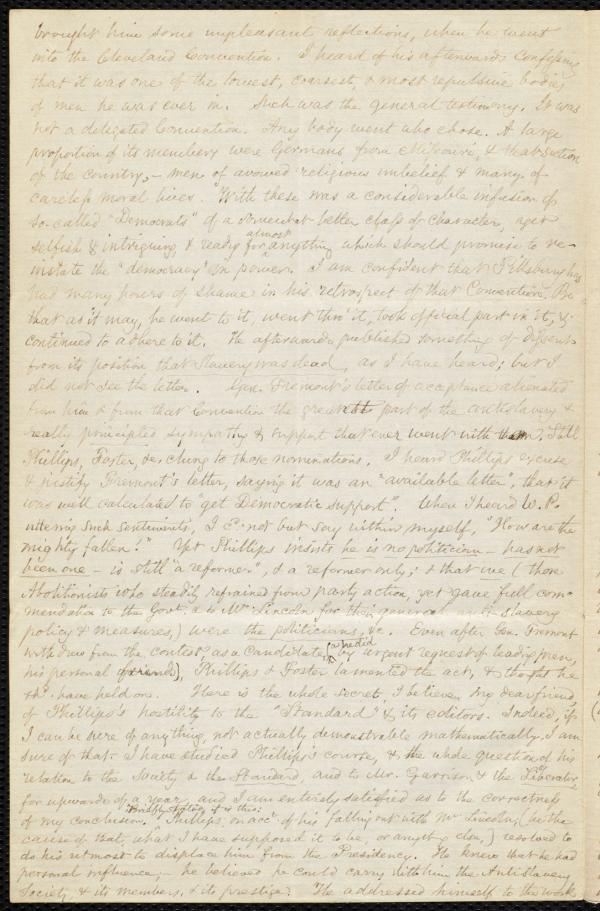 brought him some unpleasant reflections, when he went
into the Cleveland Convention. I heard of his afterwards confessing
that it was one of the lowest, coarsest, & most repulsive bodies
of men he was ever in. Such was the general testimony. It was
not a delegated Convention. Any body went who chose. A large
proportion of its members were Germans from Missouri, & that section
of the country, - men of avowed religious unbelief & many of
careless moral lives. With these was a considerable infusion of
so-called "Democrats" of a somewhat better class of character, eger
selfish & intriguing, & ready for almost anything which should promise to re-
instate the "democracy" in power. I am confident that Pillsbury has
had many hours of shame in his retrospect of that Convention. Be
that as it may, he went to it, went thro' it, took official part in it, &
continued to adhere to it. He afterwards published something of dissent
from its position that Slavery was dead, as I have heard; but I
did not see the letter. Gen. Fremont's letter of acceptance alienated
from him & from that Convention the greatest part of the antislavery &
really principled sympathy & support that ever went with them. Still
Phillips, Foster, &c. clung to those nominations. I heard Phillips excuse
& justify Fremont's letter, saying it was an "available letter", that it
was well calculated to "get Democratic support". When I heard W. P.
uttering such sentiments, I cd. not but say within myself, "How are the
mighty fallen!" Yet Phillips insists he is no politician - has not
been one - is still "a reformer", & a reformer only; & that we (those
Abolitionists who steadily refrained from party action, yet gave full com-
mendation to the Govt. & to Mr. Lincoln for their general antislavery
policy & measures,) were the politicians, &c. Even after Gen. Fremont
withdrew from the contest, as a candidate, (as he did by urgent request of leading men,
his personal friends), Phillips & Foster lamented the act, & thought he
shd. have held on. There is the whole secret, I believe, my dear friend,
of Phillips's hostility to the "Standard" & its editors. Indeed, if
I can be sure of anything, not actually demonstrable mathematically, I am
sure of that. I have studied Phillips's course, & the whole question of his
relation to the Society & the Standard, and to Mr. Garrison & the Liberator,
for upwards of a year, and I am entirely satisfied as to the correctness
of my conclusion. Briefly stated, it is this: Phillips, on acct. of his falling out with Mr Lincoln, (be the
cause of that, what I have supposed it to be, or anything else,) resolved to
do his utmost to displace him from the Presidency. He knew that he had
personal influence; he believed he could carry with him the Antislavery
Society, & its members, & its prestige. He addressed himself to the work